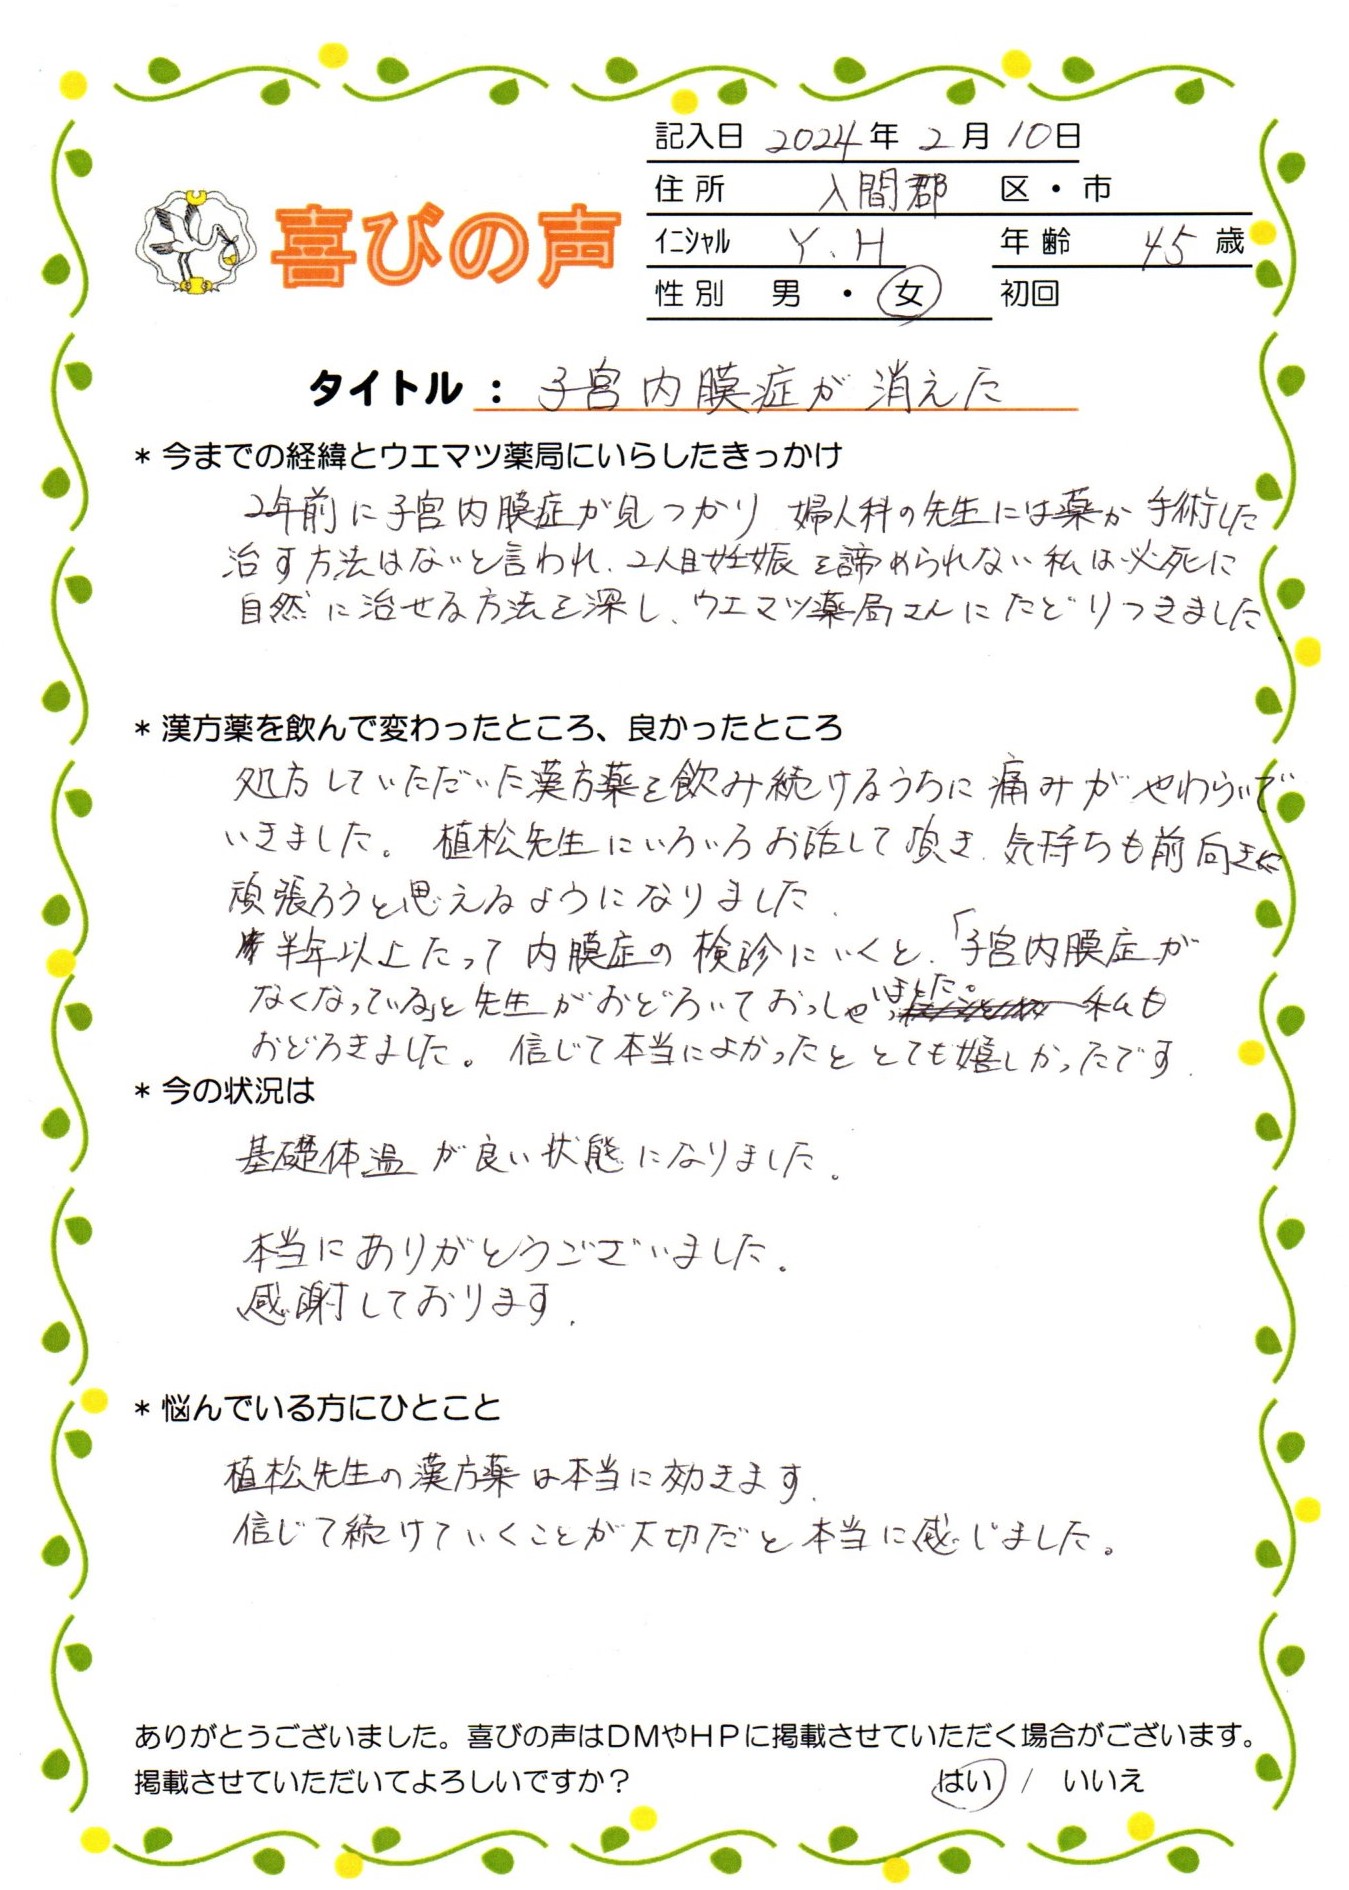 記入日 2024年 2月 10日
住所 入間郡 区・市
喜びの声
ｲﾆｼｬﾙ Y.H 年齢 45歳
性別 男 ・ 女 初回
タイトル : 子宮内膜症が消えた
* 今までの経緯とウエマツ薬局にいらしたきっかけ
2年前に子宮内膜症が見つかり 婦人科の先生には薬か手術しか
治す方法はないと言われ、2人目妊娠を諦められない私は必死に
自然に治せる方法を深し、ウエマツ薬局さんにたどりつきました.
* 漢方薬を飲んで変わったところ、良かったところ
処方していただいた漢方薬を飲み続けるうちに痛みがやわらいで
いきました。 植松先生にいろいろお話して頂き、気持ちも前向きに
頑張ろうと思えるようになりました.
半年以上たって内膜症の検診にいくと、「子宮内膜症が
なくなっている」と先生がおどろいておっしゃっいました。 私も
おどろきました。 信じて本当によかったと とても嬉しかったです.
* 今の状況は
基礎体温が良い状態になりました.
本当にありがとうございました.
感謝しております.
* 悩んでいる方にひとこと
植松先生の漢方薬は本当に効きます.
信じて続けていくことが大切だと本当に感じました。
ありがとうございました。喜びの声はDMやHPに掲載させていただく場合がございます。
掲載させていただいてよろしいですか？ はい / いいえ